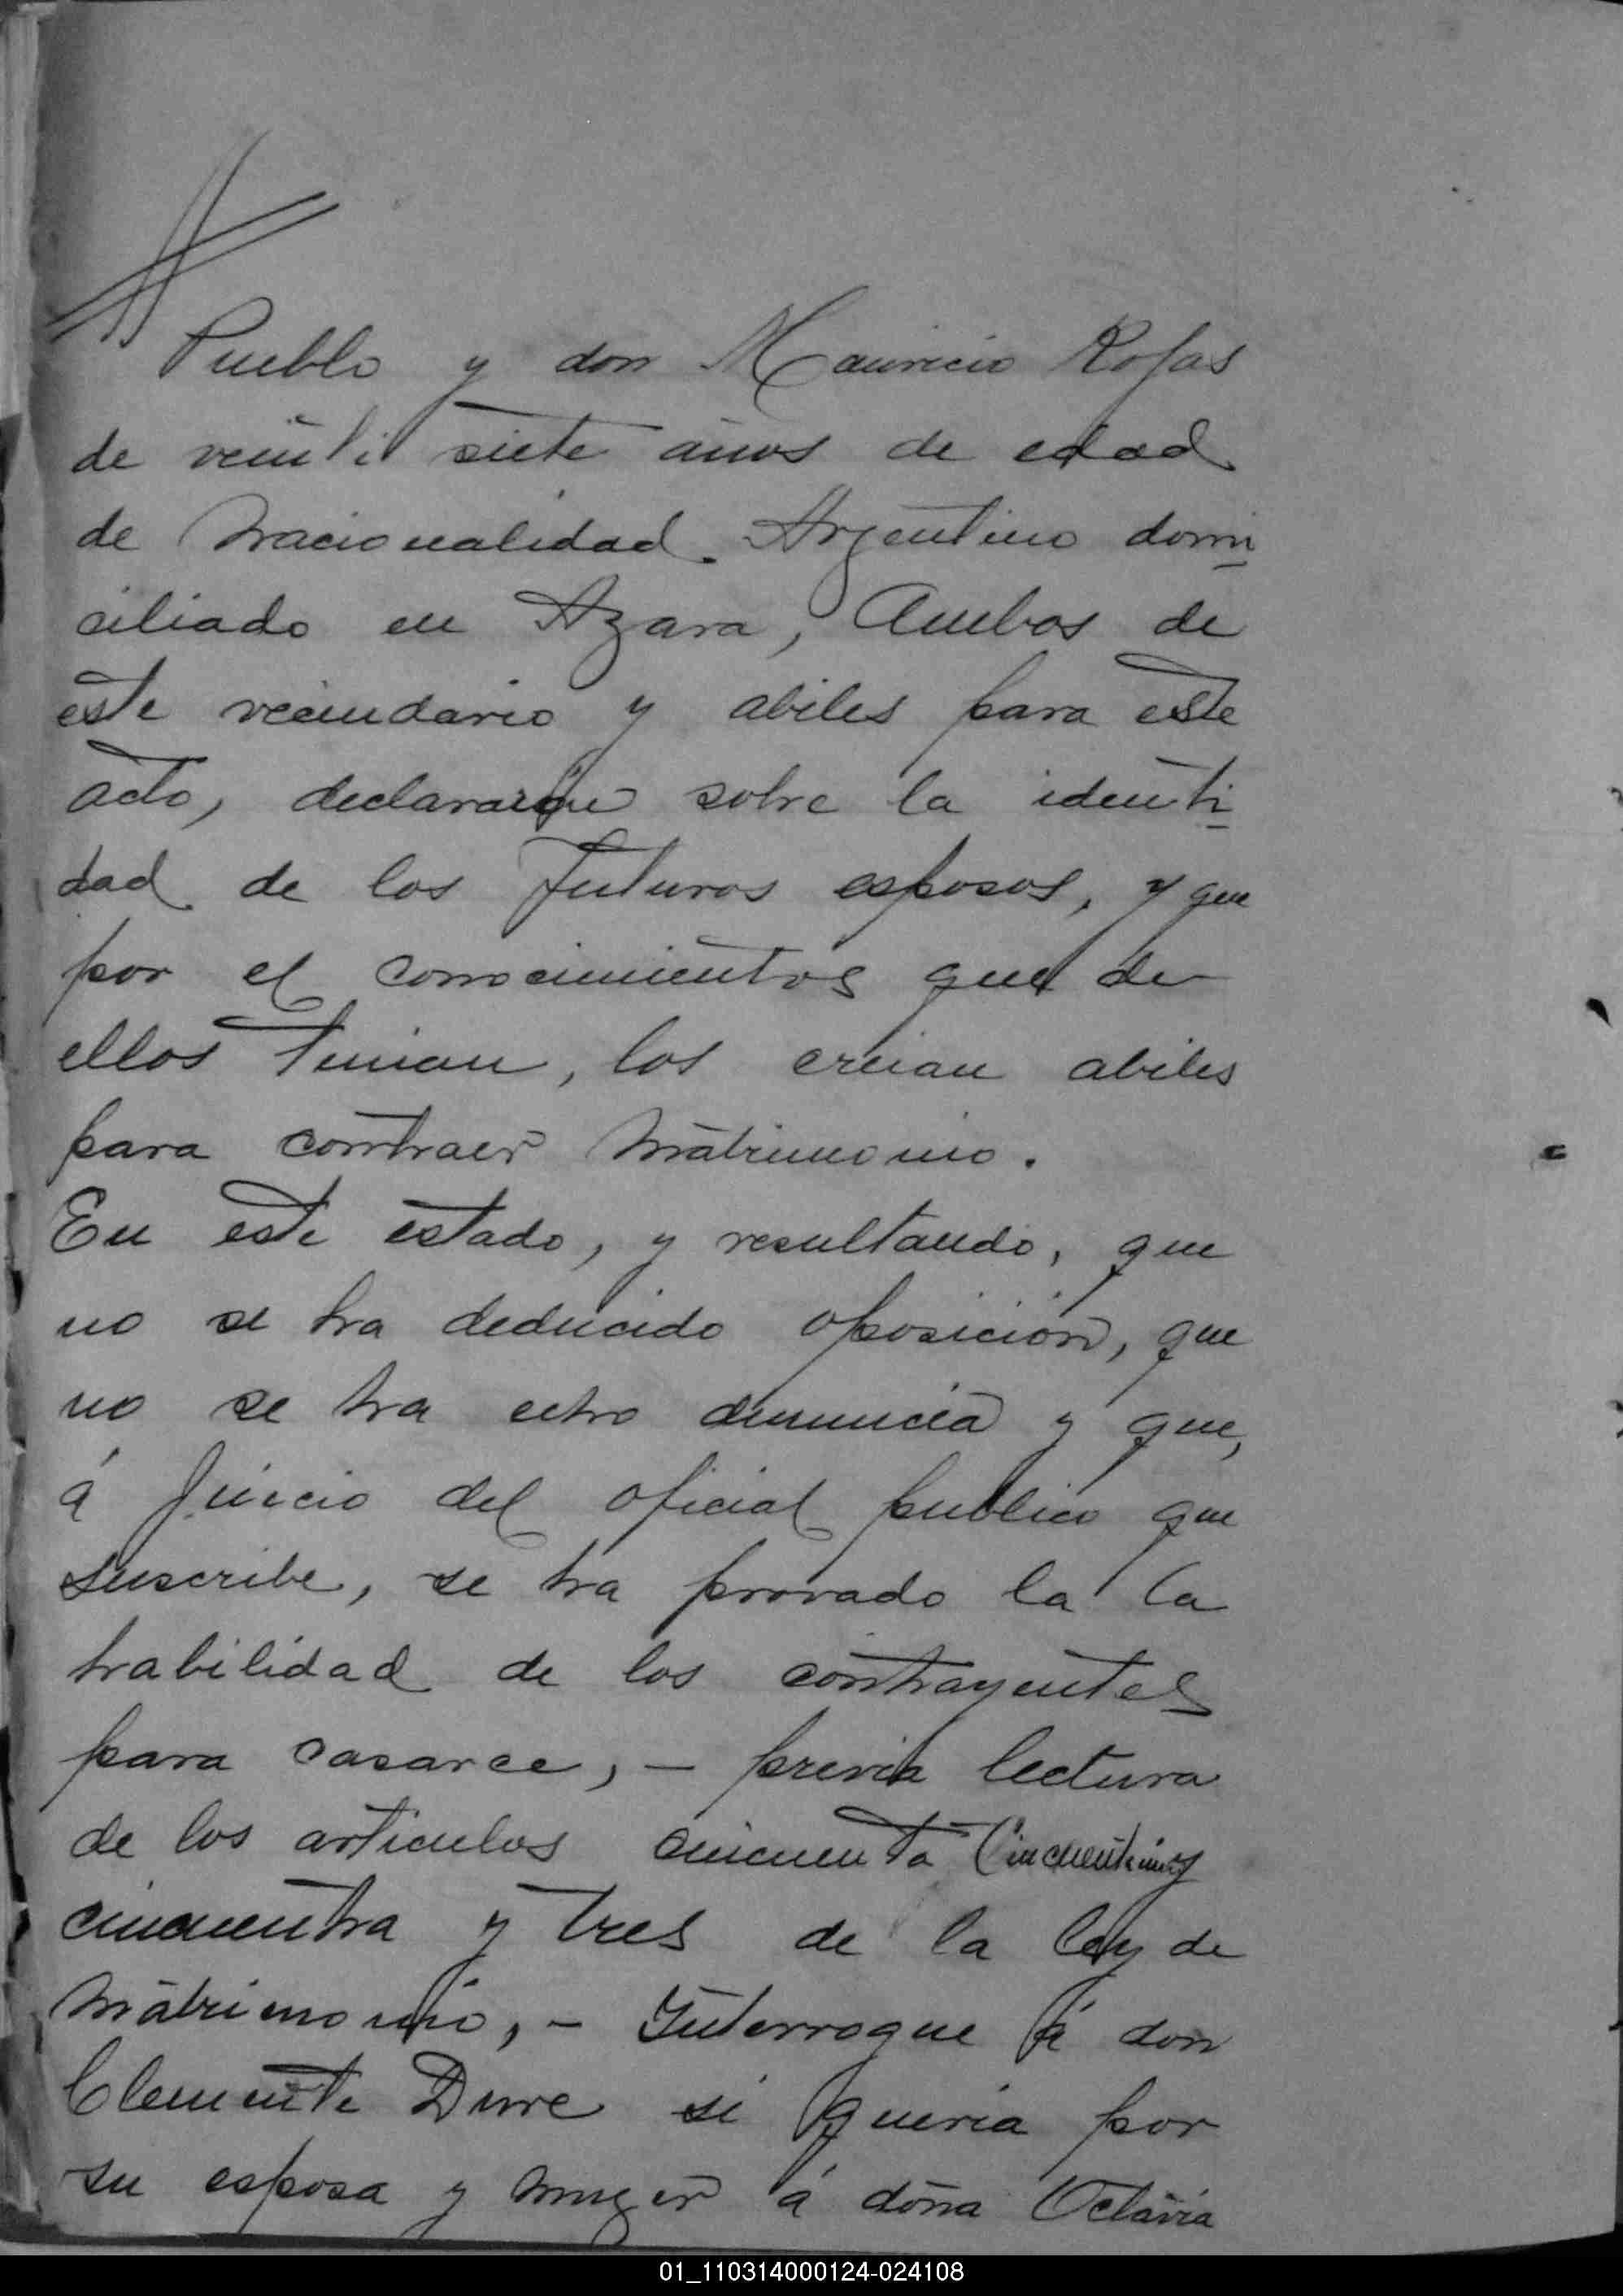 Pueblo y don Mauricio Rojas
de veinti siete años de edad
de nacionalidad Argentino domi
ciliado en Azara, Ambos de
este vecindario y abiles para este
acto, declararon sobre la identi
dad de los futuros esposos, y que
por el conocimientos que de
ellos tenian, los creian abiles
para contraer matrimonio.
En este estado, y resultando, que
no se ha deducido oposición, que
no se ha echo denuncia y que,
á juicio del oficial publico que
suscribe, se ha provado la la
habilidad de los contrayentes
para casarce, – previa lectura
de los articulos cincuenta
cincuenta y tres de la ley de
matrimonio, – Interrogue á don
Clemente Dure si queria por
su esposa y muger á doña Octavia
01_110314000124-024108